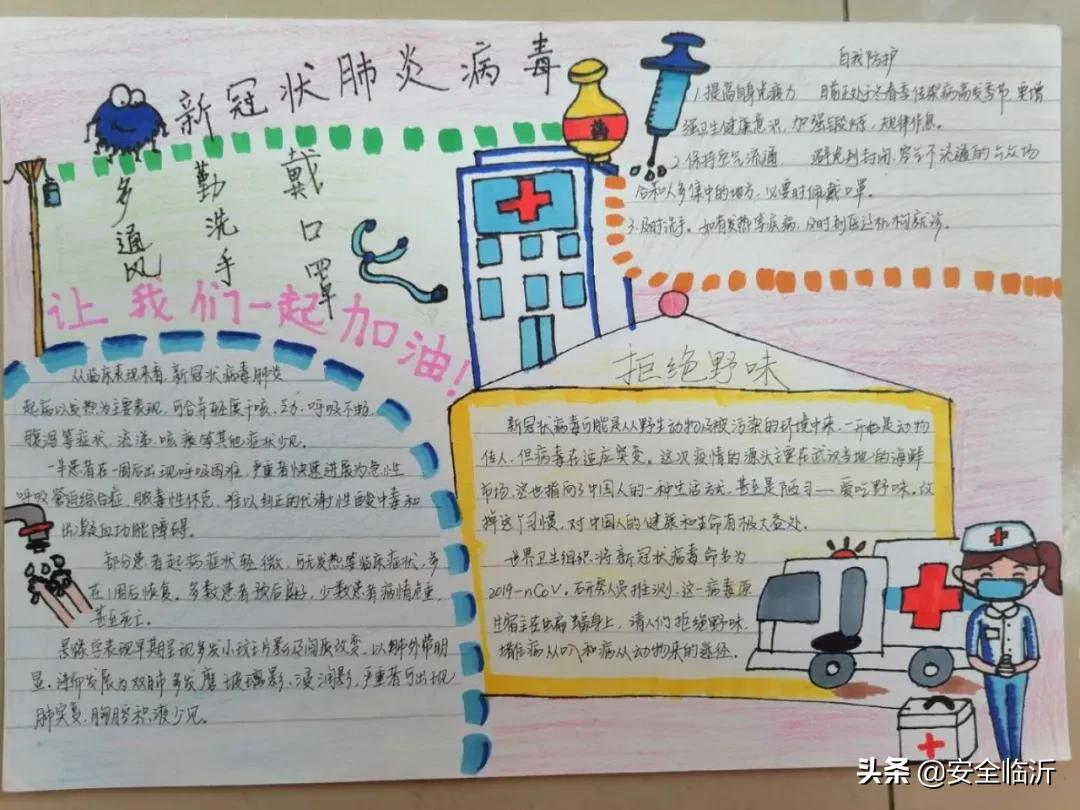 新冠状肺炎病毒
戴口罩
勤洗手
多通风
让我们一起加油!
药
自我防护
1.提高自身免疫力 目前正处于冬春季传染病高发季节 要增
强卫生健康意识,加强锻炼,规律作息。
2.保持空气流通 避免到封闭、空气不流通的公众场
合和人多集中的地方,必要时佩戴口罩。
3.及时洗手。如有发热等疾病,及时到医疗机构就诊。
从临床表现来看,新冠状病毒肺炎
起病以发热为主要表现,可合并轻度干咳、乏力、呼吸不畅,
腹泻等症状,流涕,咳痰等其他症状少见。
一半患者在一周后出现呼吸困难,严重者快速进展为急性
呼吸窘迫综合症,脓毒性休克,难以纠正的代谢性酸中毒和
出凝血功能障碍。
部分患者起病症状轻微,可无发热等临床症状,多
在1周后恢复。多数患者预后良好,少数患者病情危重,
甚至死亡。
表现早期呈现多发小斑片影及间质改变,以肺外带明
显,渐发展为双肺多发磨玻璃影、浸润影,严重者可出现
肺实变,胸腔积液少见。
拒绝野味
新冠状病毒可能是从野生动物及被污染的环境中来,一开始是动物
传人,但病毒在适应突变。这次疫情的源头主要在武汉当地的海鲜
市场,这也指向了中国人的一种生活方式,甚至是陋习——爱吃野味,改
掉这个习惯,对中国人的健康和生命有极大益处。
世界卫生组织将新冠状病毒命名为
2019-nCoV。研究人员推测,这一病毒原
生宿主在蝙蝠身上,请人们拒绝野味,
堵住病从口入和病从动物来的途径。
头条 @安全临沂